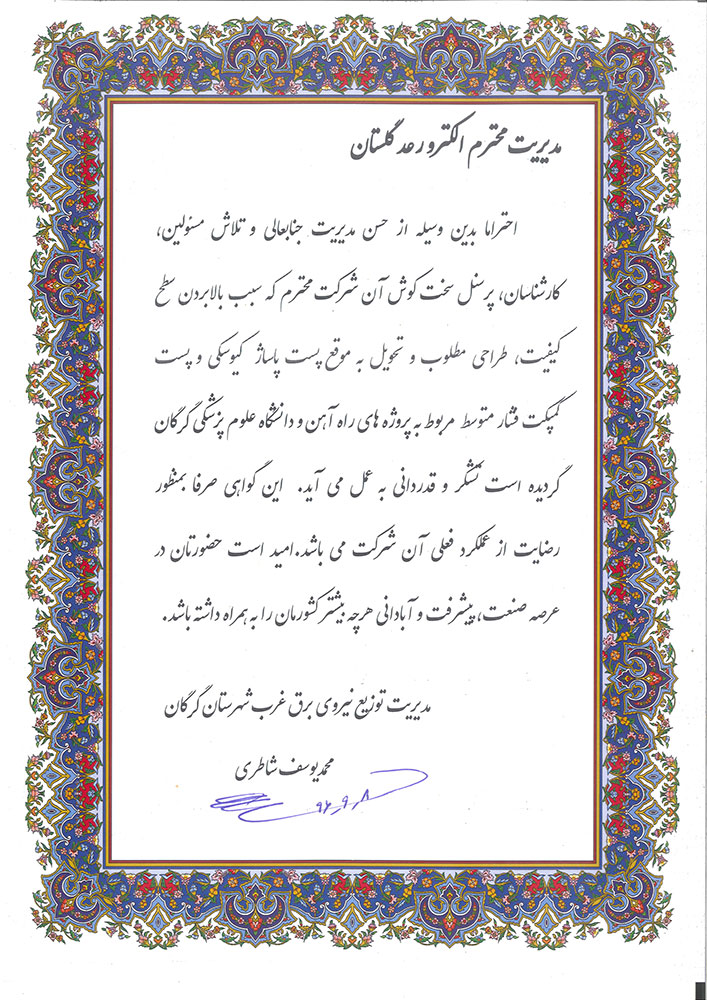 مدیریت محترم الکترو رعد گلستان
احتراما بدین وسیله از حسن مدیریت جنابعالی و تلاش مسئولین،
کارشناسان، پرسنل سخت کوش آن شرکت محترم که سبب بالابردن سطح
کیفیت، طراحی مطلوب و تحویل به موقع پست پاساژ کیوسکی و پست
کمپکت فشار متوسط مربوط به پروژه های راه آهن و دانشگاه علوم پزشکی گرگان
گردیده است تشکر و قدردانی به عمل می آید. این گواهی صرفا بمنظور
رضایت از عملکرد فعلی آن شرکت می باشد.امید است حضورتان در
عرصه صنعت، پیشرفت و آبادانی هرچه بیشتر کشورمان را به همراه داشته باشد.
مدیریت توزیع نیروی برق غرب شهرستان گرگان
محمد یوسف شاطری
۹۶,۹,۸